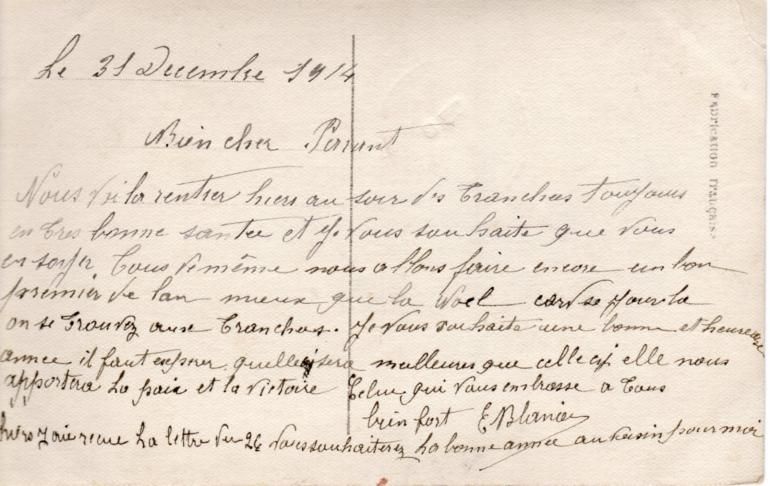 Le 31 Decembre 1914
Bien cher Parrent
Nous voila rentrer hiers au soir des Tranchas toujours
en tres bonne santee et je vous souhaite que vous
en soyer Tous de même nous allons faire encore un bon
premier de lan mieux que la Noel card se jour la
on se trouvez aux Tranchas. Je vous souhaite une bonne et heureuse
annee il faut esperer quelle sera meilleures que celle ci elle nous
apportera La paix et la victoire Celui qui vous embrasse a Tous
bien fort E Blanc
hiers J aie recue La lettre du 26 vous souhaiterez La bonne annee au voisin pour moi
Fabrication française